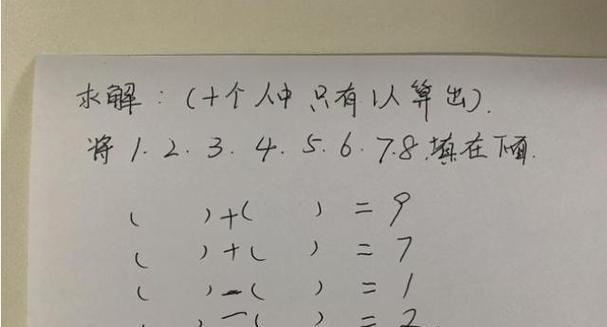 求解：(十个人中只有1人算出).
将 1. 2. 3. 4. 5. 6. 7. 8. 填在下面.
( )+( ) = 9
( )+( ) = 7
( )-( ) = 1
( )-( ) = 2